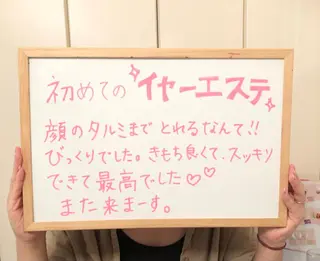 初めての イヤーエステ
顔のタルミまでとれるなんて!!
びっくりでした。きもち良くて、スッキリ
できて最高でした♡♡
また来まーす。